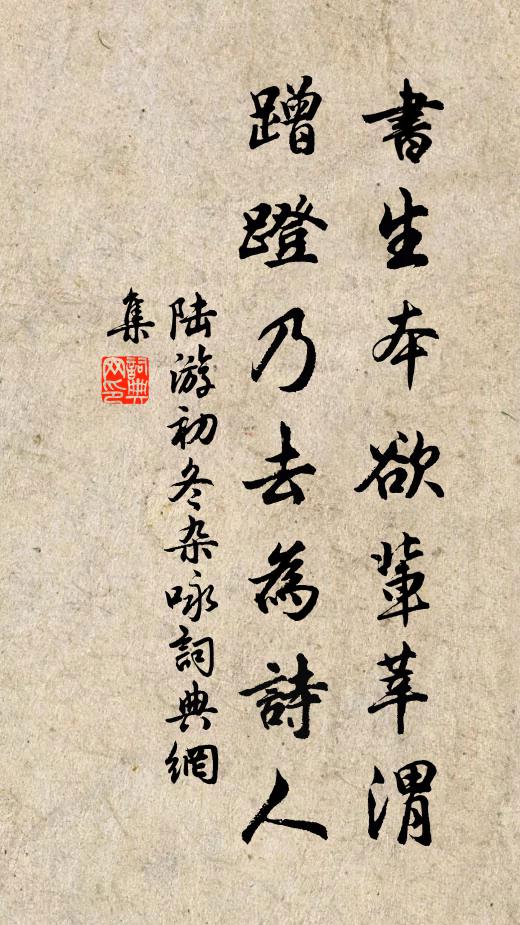 書生本欲輩莘渭
蹭蹬乃去為詩人
陆游初冬杂咏詞典網
集
詞典網印